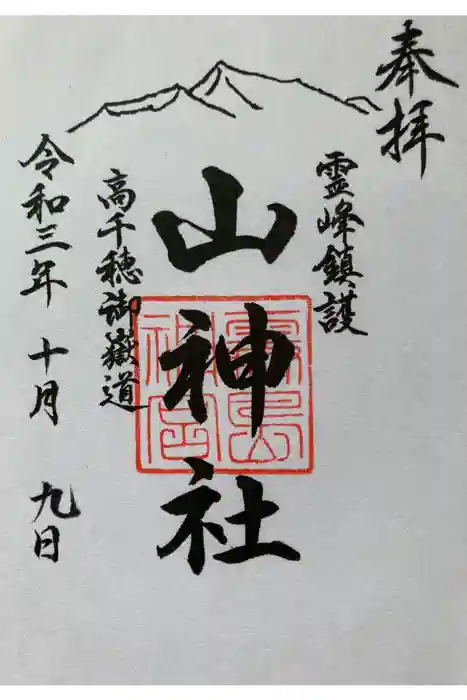 奉拝
霊峰鎮護
山神社
高千穂御嶽道
令和三年 十月 九日